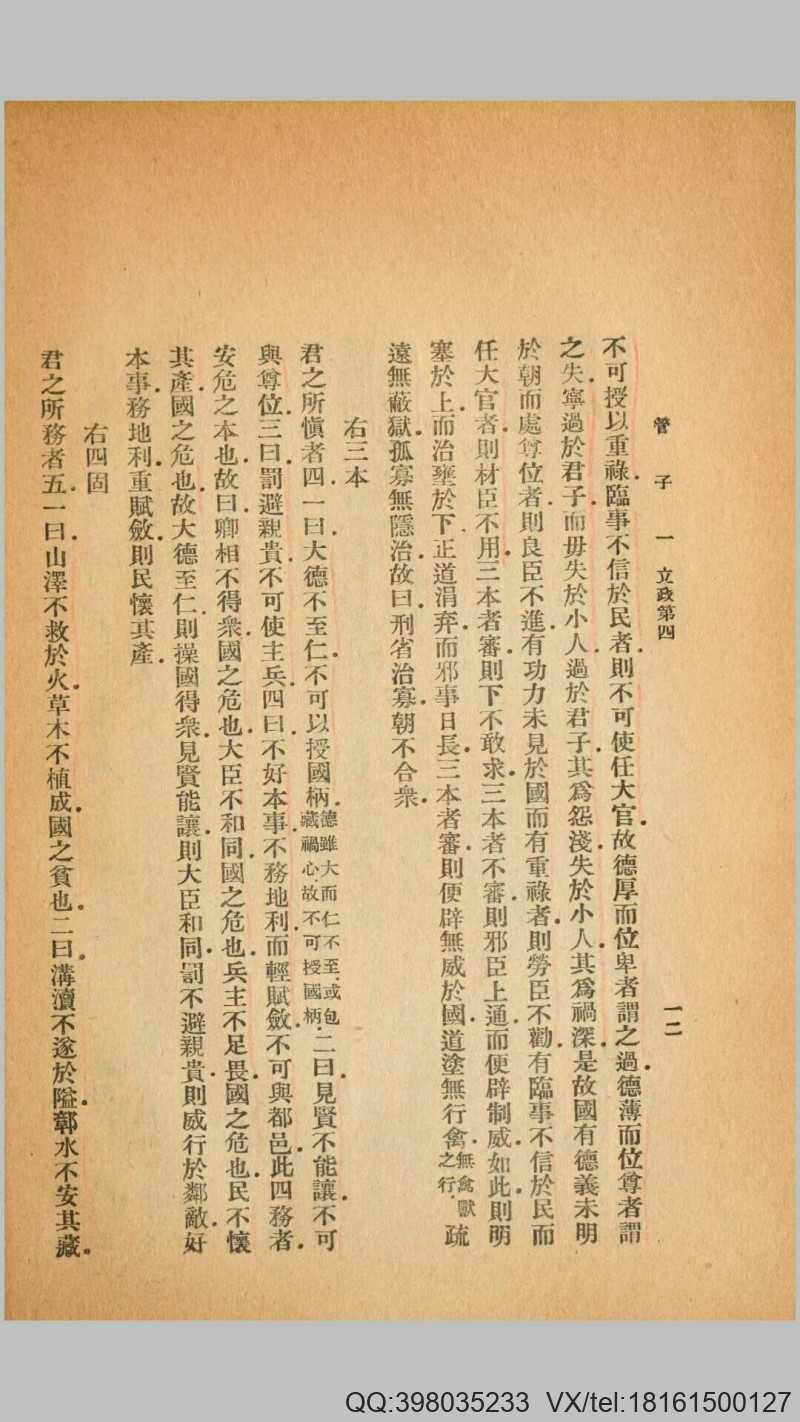 管子 一 立政第四 一二
不可授以重祿.臨事不信於民者.則不可使任大官.故德厚而位卑者謂之過.德薄而位尊者謂
之失.寧過於君子.而毋失於小人.過於君子.其爲怨淺.失於小人.其爲禍深.是故國有德義未明
於朝而處尊位者.則良臣不進.有功力未見於國而有重祿者.則勞臣不勸.有臨事不信於民而
任大官者.則材臣不用.三本者審.則下不敢求.三本者不審.則邪臣上通.而便辟制威.如此.則明
塞於上.而治壅於下.正道涓弃.而邪事日長.三本者審.則便辟無威於國.道塗無行禽.無禽獸之行.疏
遠無蔽獄.孤寡無隱治.故曰.刑省治寡.朝不合衆.
右三本
君之所愼者四.一曰.大德不至仁.不可以授國柄.德雖大而仁不至.或包藏禍心.故不可授國柄.二曰.見賢不能讓.不可
與尊位.三曰.罰避親貴.不可使主兵.四曰.不好本事.不務地利.而輕賦斂.不可與都邑.此四務者.
安危之本也.故曰.卿相不得衆.國之危也.大臣不和同.國之危也.兵主不足畏.國之危也.民不懷
其產.國之危也.故大德至仁.則操國得衆.見賢能讓.則大臣和同.罰不避親貴.則威行於鄰敵.好
本事.務地利.重賦斂.則民懷其產.
右四固
君之所務者五.一曰.山澤不救於火.草木不植成.國之貧也.二曰.溝瀆不遂於隘.鄣水不安其藏.
QQ:398035233 VX/tel:18161500127